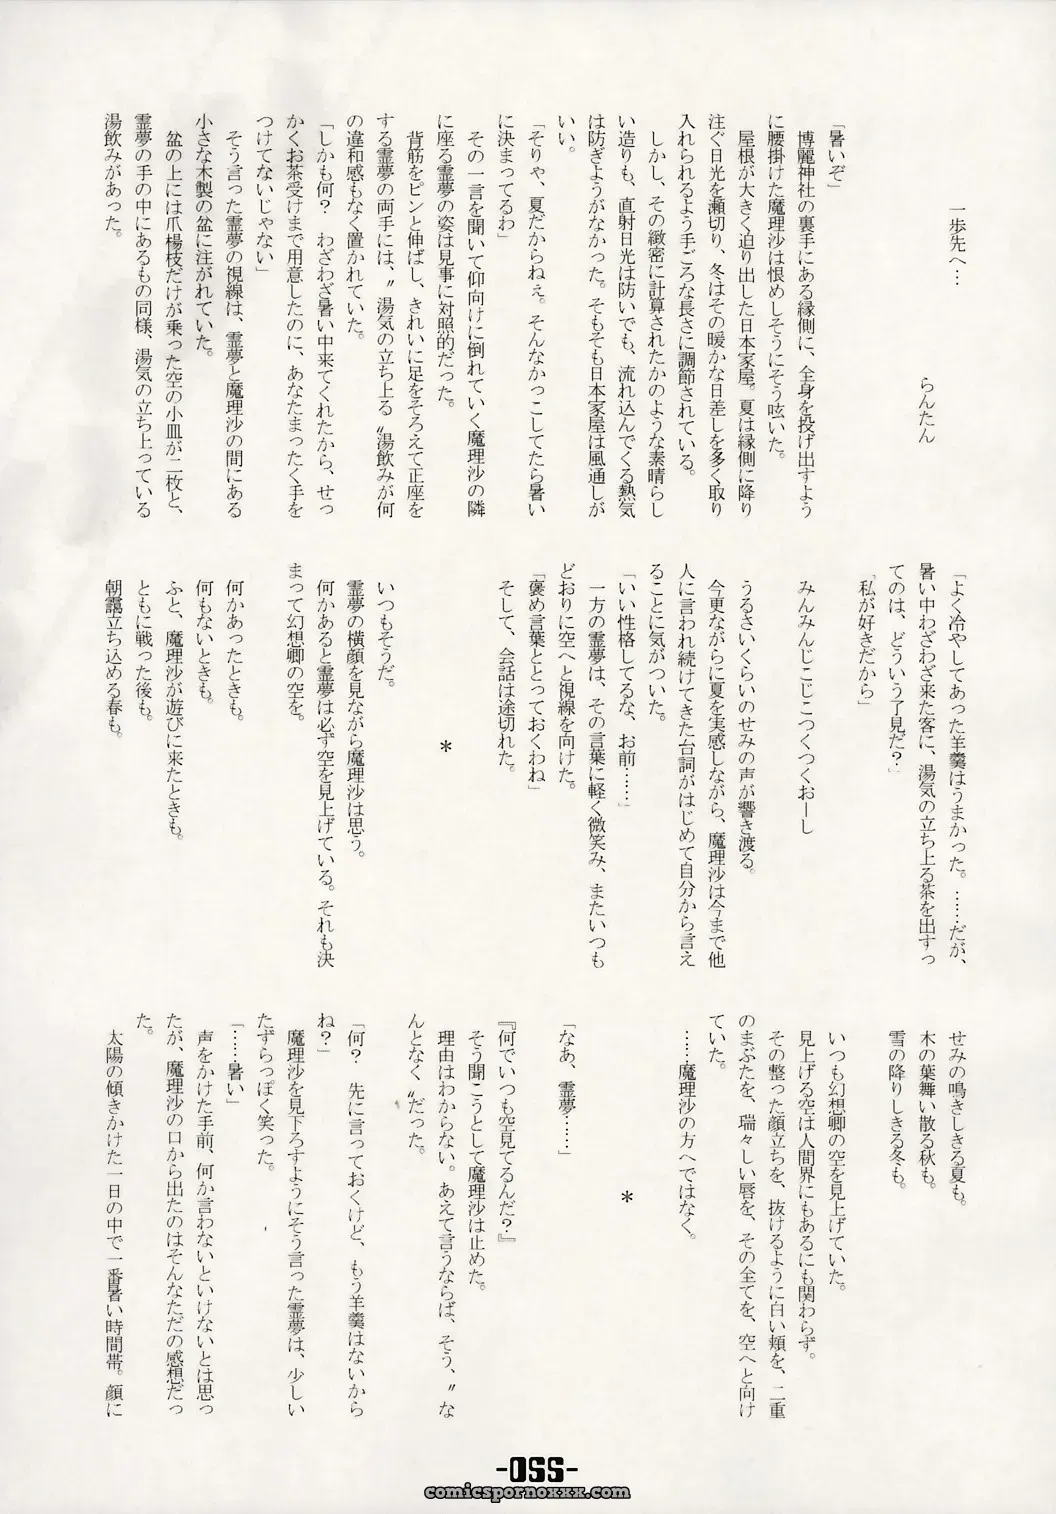 一歩先へ…
らんたん
「暑いぞ」
博麗神社の裏手にある縁側に、全身を投げ出すよう
に腰掛けた魔理沙は恨めしそうにそう呟いた。
屋根が大きく迫り出した日本家屋。夏は縁側に降り
注ぐ日光を遮切り、冬はその暖かな日差しを多く取り
入れられるよう手ごろな長さに調節されている。
しかし、その緻密に計算されたかのような素晴らし
い造りも、直射日光は防いでも、流れ込んでくる熱気
は防ぎようがなかった。そもそも日本家屋は風通しが
いい。
「そりゃ、夏だからねぇ。そんなかっこしてたら暑い
に決まってるわ」
その一言を聞いて仰向けに倒れていく魔理沙の隣
に座る霊夢の姿は見事に対照的だった。
背筋をピンと伸ばし、きれいに足をそろえて正座を
する霊夢の両手には、〃湯気の立ち上る〃湯飲みが何
の違和感もなく置かれていた。
「しかも何?　わざわざ暑い中来てくれたから、せっ
かくお茶受けまで用意したのに、あなたまったく手を
つけてないじゃない」
そう言った霊夢の視線は、霊夢と魔理沙の間にある
小さな木製の盆に注がれていた。
盆の上には爪楊枝だけが乗った空の小皿が二枚と、
霊夢の手の中にあるもの同様、湯気の立ち上っている
湯飲みがあった。
「よく冷やしてあった羊羹はうまかった。……だが、
暑い中わざわざ来た客に、湯気の立ち上る茶を出すっ
てのは、どういう了見だ?」
「私が好きだから」
みんみんじこじこつくつくおーし
うるさいくらいのせみの声が響き渡る。
今更ながらに夏を実感しながら、魔理沙は今まで他
人に言われ続けてきた台詞がはじめて自分から言え
ることに気がついた。
「いい性格してるな、お前……」
一方の霊夢は、その言葉に軽く微笑み、またいつも
どおりに空へと視線を向けた。
「褒め言葉ととっておくわね」
そして、会話は途切れた。
*
いつもそうだ。
霊夢の横顔を見ながら魔理沙は思う。
何かあると霊夢は必ず空を見上げている。それも決
まって幻想卿の空を。
何かあったときも。
何もないときも。
ふと、魔理沙が遊びに来たときも。
ともに戦った後も。
朝靄立ち込める春も。
せみの鳴きしきる夏も。
木の葉舞い散る秋も。
雪の降りしきる冬も。
いつも幻想卿の空を見上げていた。
見上げる空は人間界にもあるにも関わらず。
その整った顔立ちを、抜けるように白い頬を、二重
のまぶたを、瑞々しい唇を、その全てを、空へと向け
ていた。
……魔理沙の方へではなく。
*
「なあ、霊夢……」
『何でいつも空見てるんだ?』
そう聞こうとして魔理沙は止めた。
理由はわからない。あえて言うならば、そう、〃な
んとなく〃だった。
「何?　先に言っておくけど、もう羊羹はないから
ね?」
魔理沙を見下ろすようにそう言った霊夢は、少しい
たずらっぽく笑った。
「……暑い」
声をかけた手前、何か言わないといけないとは思っ
たが、魔理沙の口から出たのはそんなただの感想だっ
た。
太陽の傾きかけた一日の中で一番暑い時間帯。顔に
-055-
comicspornoxxx.com